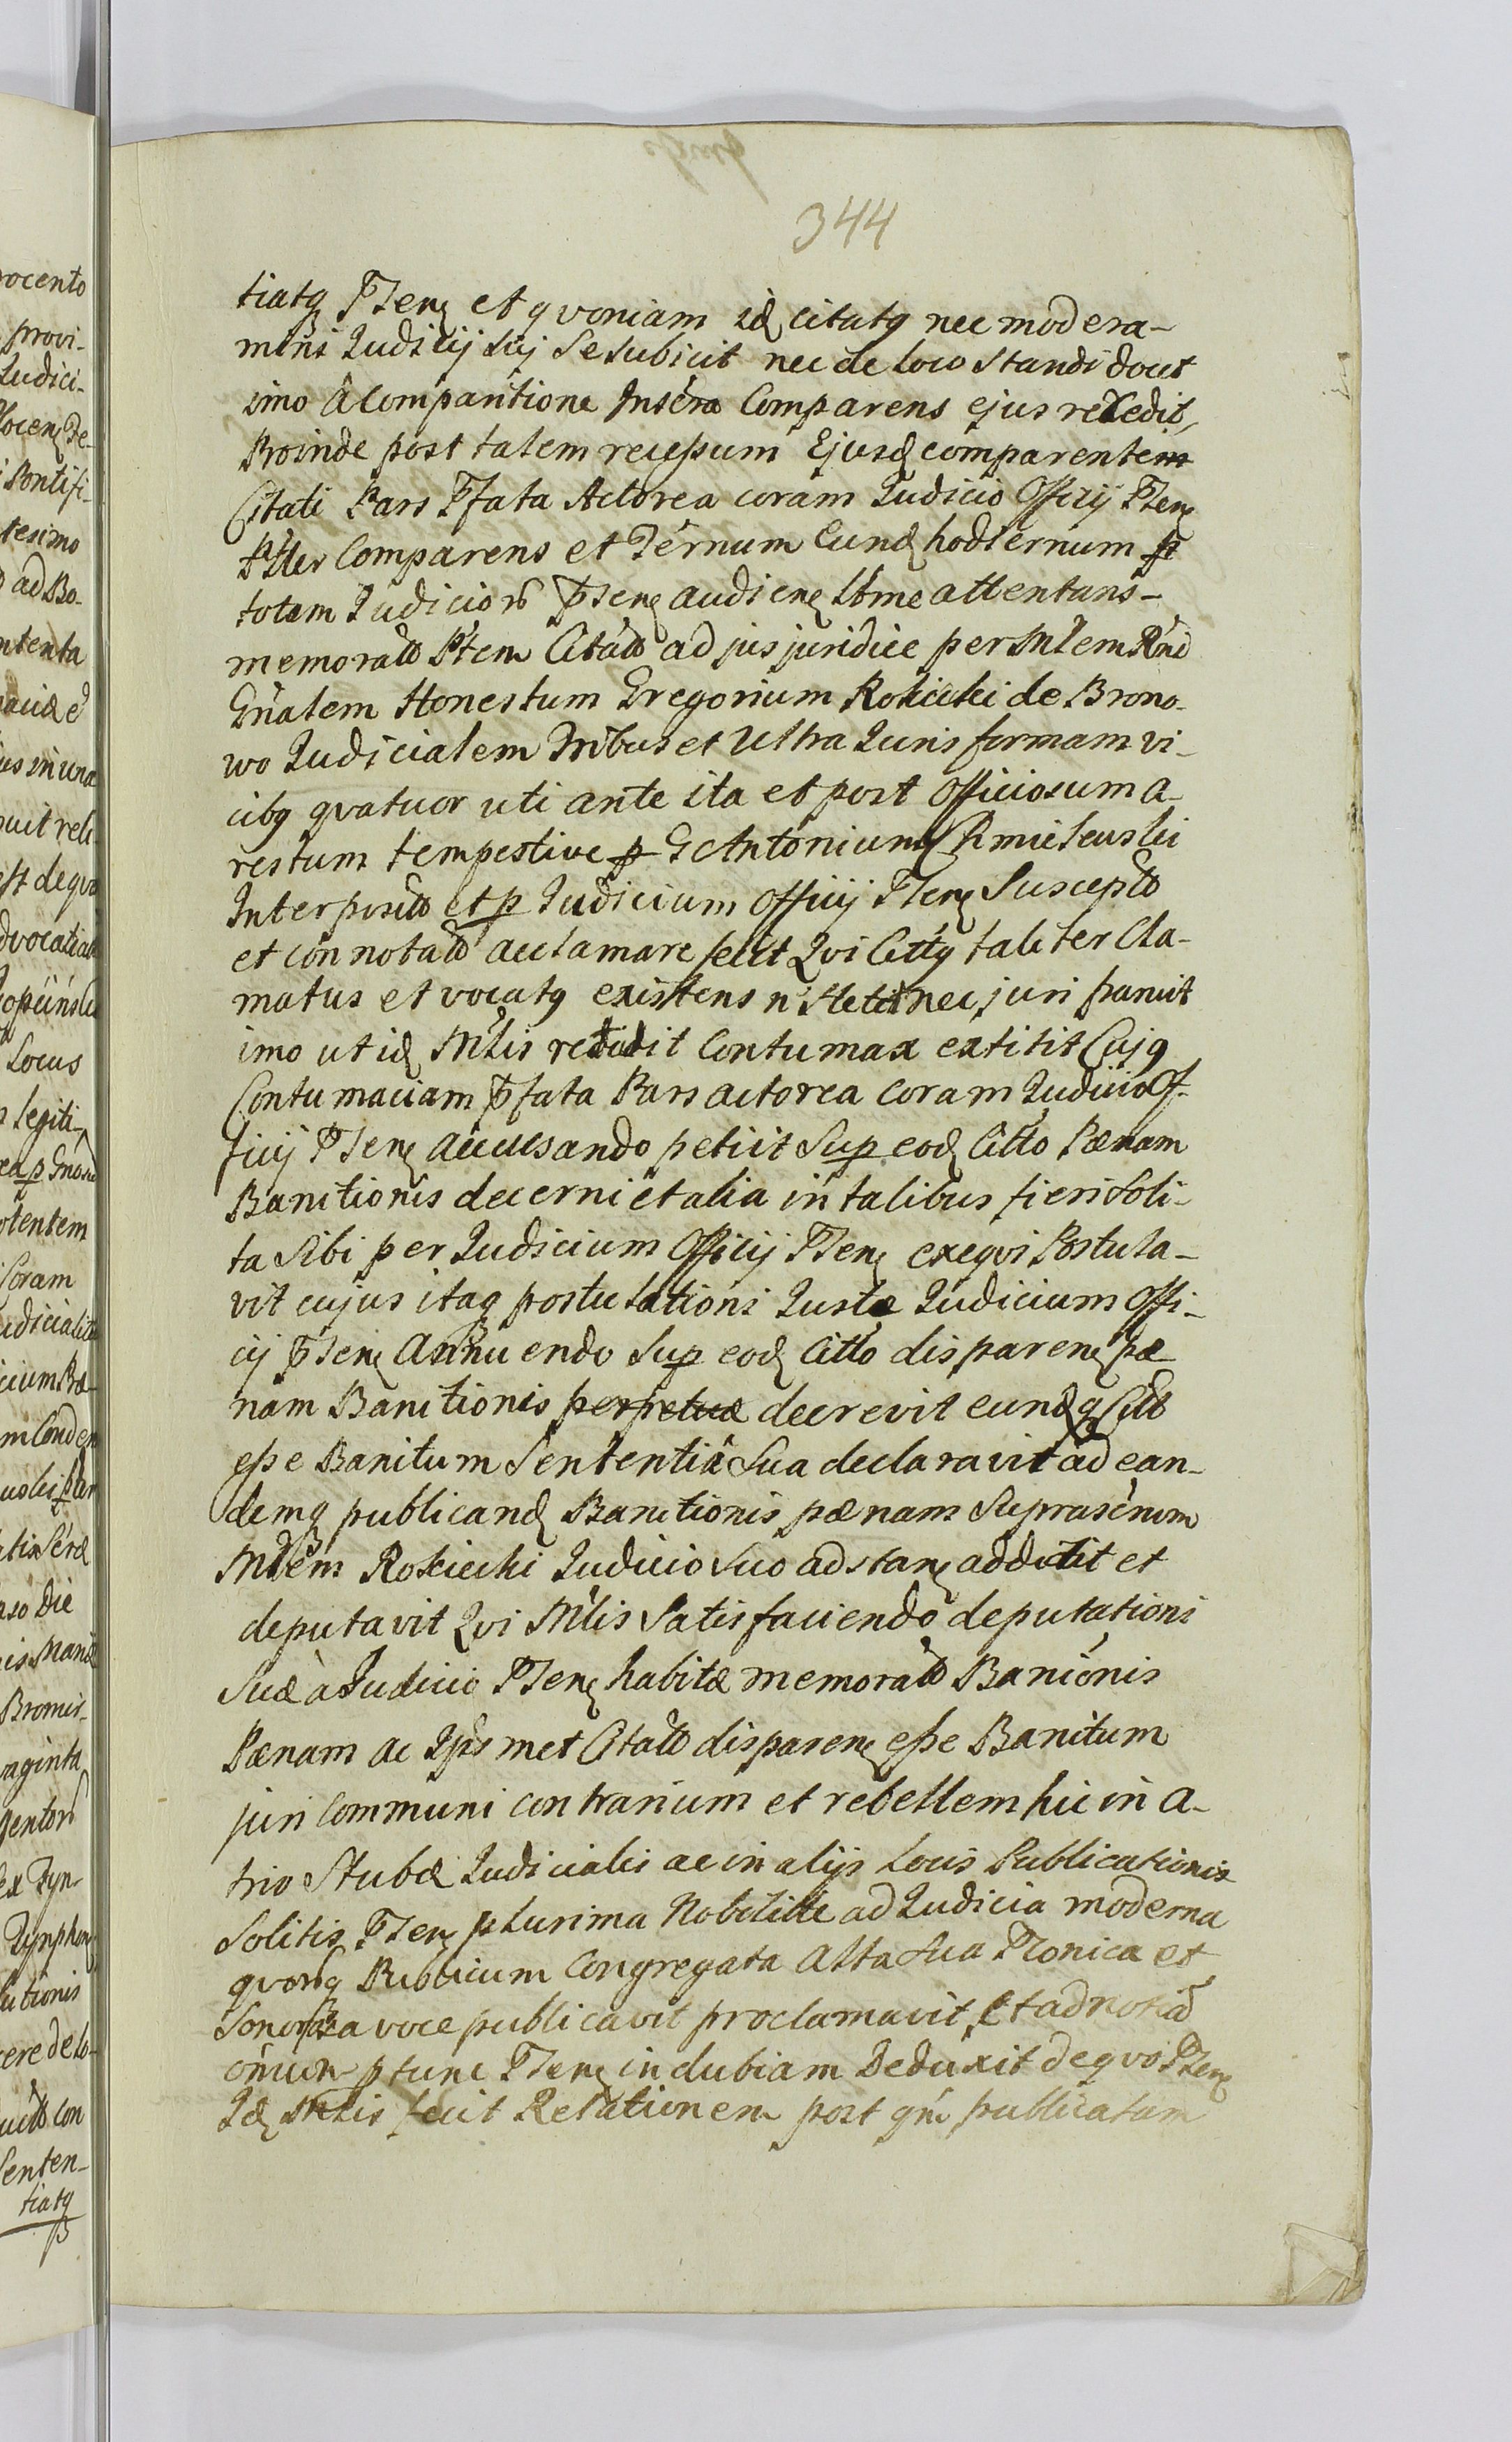 344
tiatq Psens et qvoniam id citatq nec modera-
minis Judicij sui Se subicit nec de loco standi docet
imo a Comparitione Inséra Comparens ejus recedit,
Proinde post talem recessum Ejusd comparentem
Citati Pars Pfata Actorea coram Judicio Officij Psens
Pltter Comparens et Ternum Eund hodiernum p
totam Judicioru Psens audiens ltime attentans-
memoratu Ptem Citatu ad jus juridice per Mlem Rni
Gnalem Honestum Gregorium Rokicki de Brono-
wo Judicialem Tribus et Ultra Juris formam vi-
cibq qvatuor uti ante ita et post Officiosum a-
restum tempestive p G Antonium Chmielewski
Interpositu et p Judicium Officij Psens Susceptu
et connotatu acclamare fecit Qvi Cittq taliter Cla-
matus et vocatq existens n stetit nec juri paruit
imo ut id Mlis retulit Contumax extitit Cujq
Contumaciam Pfata Pars actorea coram Judicio Of-
ficij Psens accusando petiit Sup eod Citto Pænam
Banitionis decerni et alia in talibus fieri Soli-
ta Sibi per Judicium Officij Psens exeqvi Postula-
vit cujus itaq postulationi Justæ Judicium Offi-
cij Psens Annuendo Sup eod Citto disparens pæ-
nam Banitionis perpetuæ decrevit eundq Cittu
esse Banitum Sententia Sua declaravit ad ean-
demq publicand Banitionis pænam Suprasénum
Mlem Rokicki Judicio Suo adstans addidit et
deputavit Qvi Mlis Satisfaciendo deputationi
Suæ à Judicio Psens habitæ memoratu Baniónis
Pænam ac Ipsmet Citatu disparens esse Banitum
juri Communi contrarium et rebellem hic in a-
trio Stubæ Judicialis ac in alijs Locis Publicationis
Solitis Psens plurima Nobilitte ad Judicia moderna
qvorq Publicum Congregata Alta Sua Tonica et
Sonorosa voce publicavit proclamavit, Et ad notiã
omum p tunc Psens indubiam Deduxit de qvo Psens
Id Mlis fecit Relationem post qm publicatam